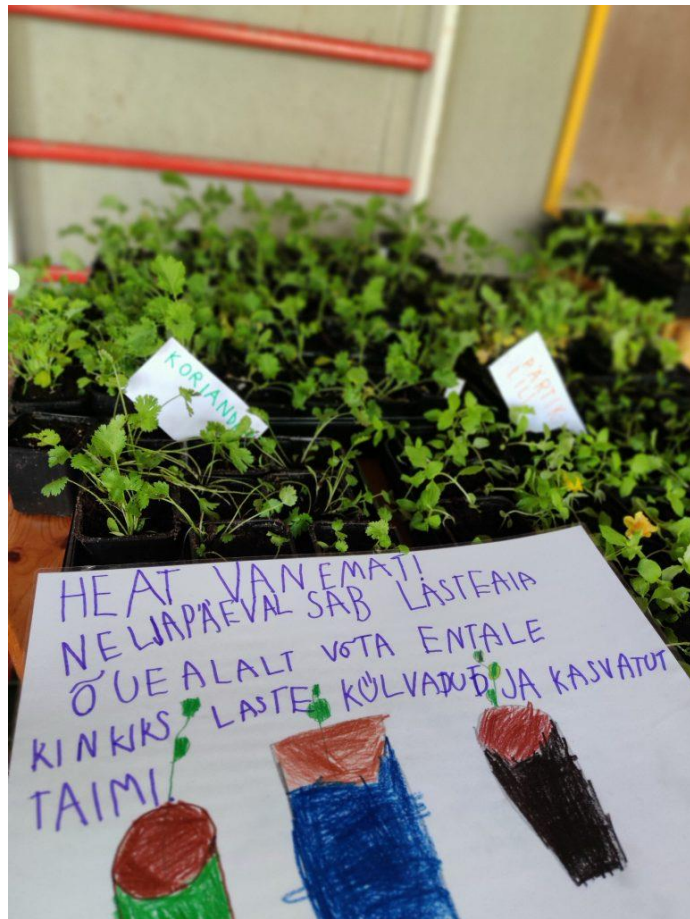 KORIAND
HEAT VANEMAT!
NELJAPÄEVAL SAB LASTEAIA
ÕUEALALT VOTA ENTALE
KINKIKS LASTE KÜLVADUD JA KASVATUT
TAIMI.